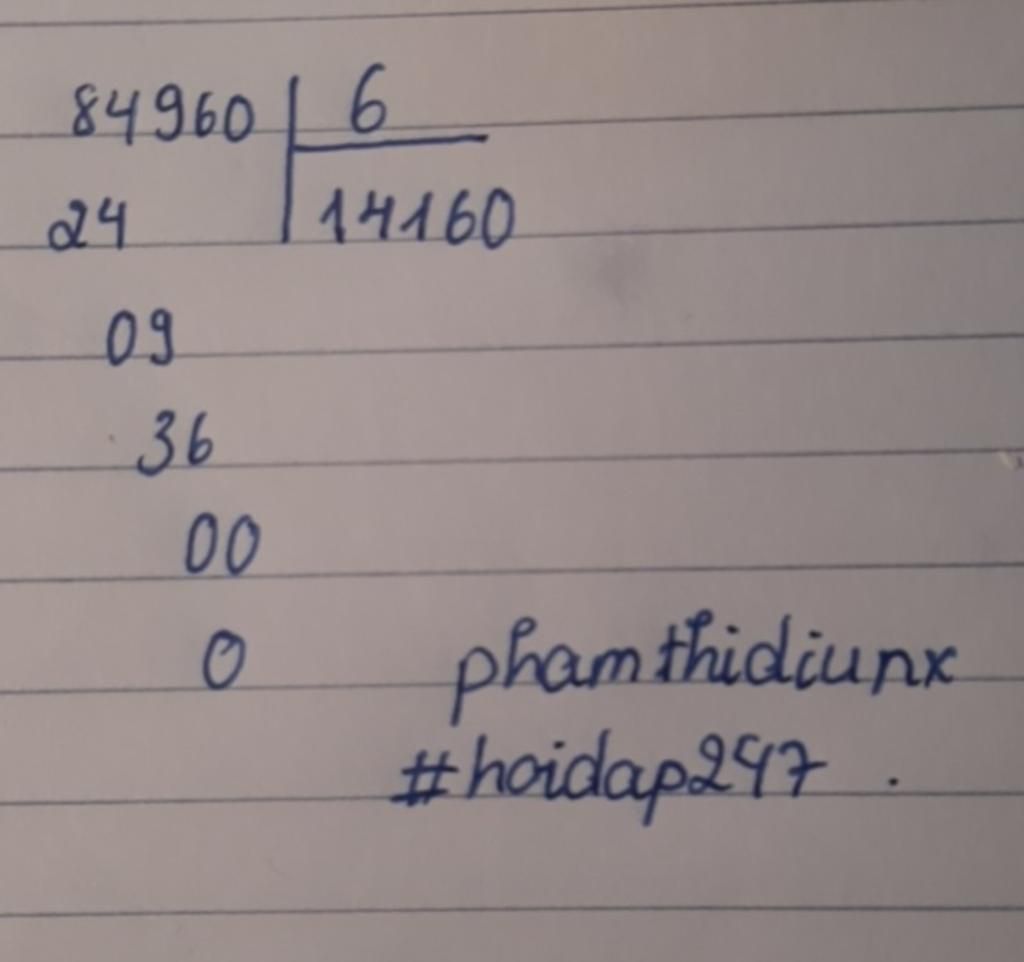 84960 | 6
24 | 14160
09
36
00
0 phamthidiunx
#hoidap247 .